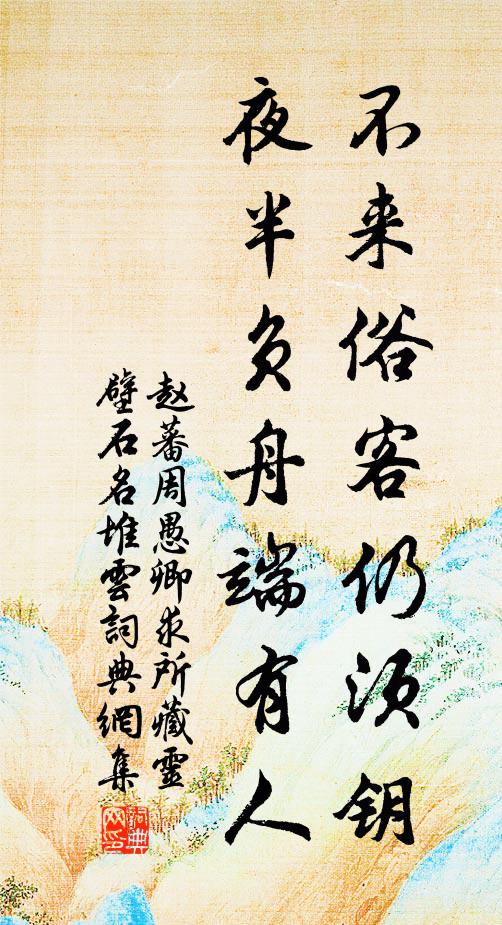 不来俗客仍须钥
夜半负舟端有人
赵蕃周愚卿求所藏靈
璧石名堆雲詞典網集
詞典